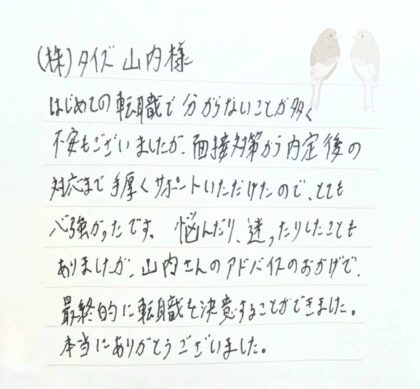 (株)タイズ 山内様
はじめての転職で分からないことが多く
不安もございましたが、面接対策から内定後の
対応まで手厚くサポートいただけたので、とても
心強かったです。悩んだり、迷ったりしたことも
ありましたが、山内さんのアドバイスのおかげで、
最終的に転職を決意することができました。
本当にありがとうございました。